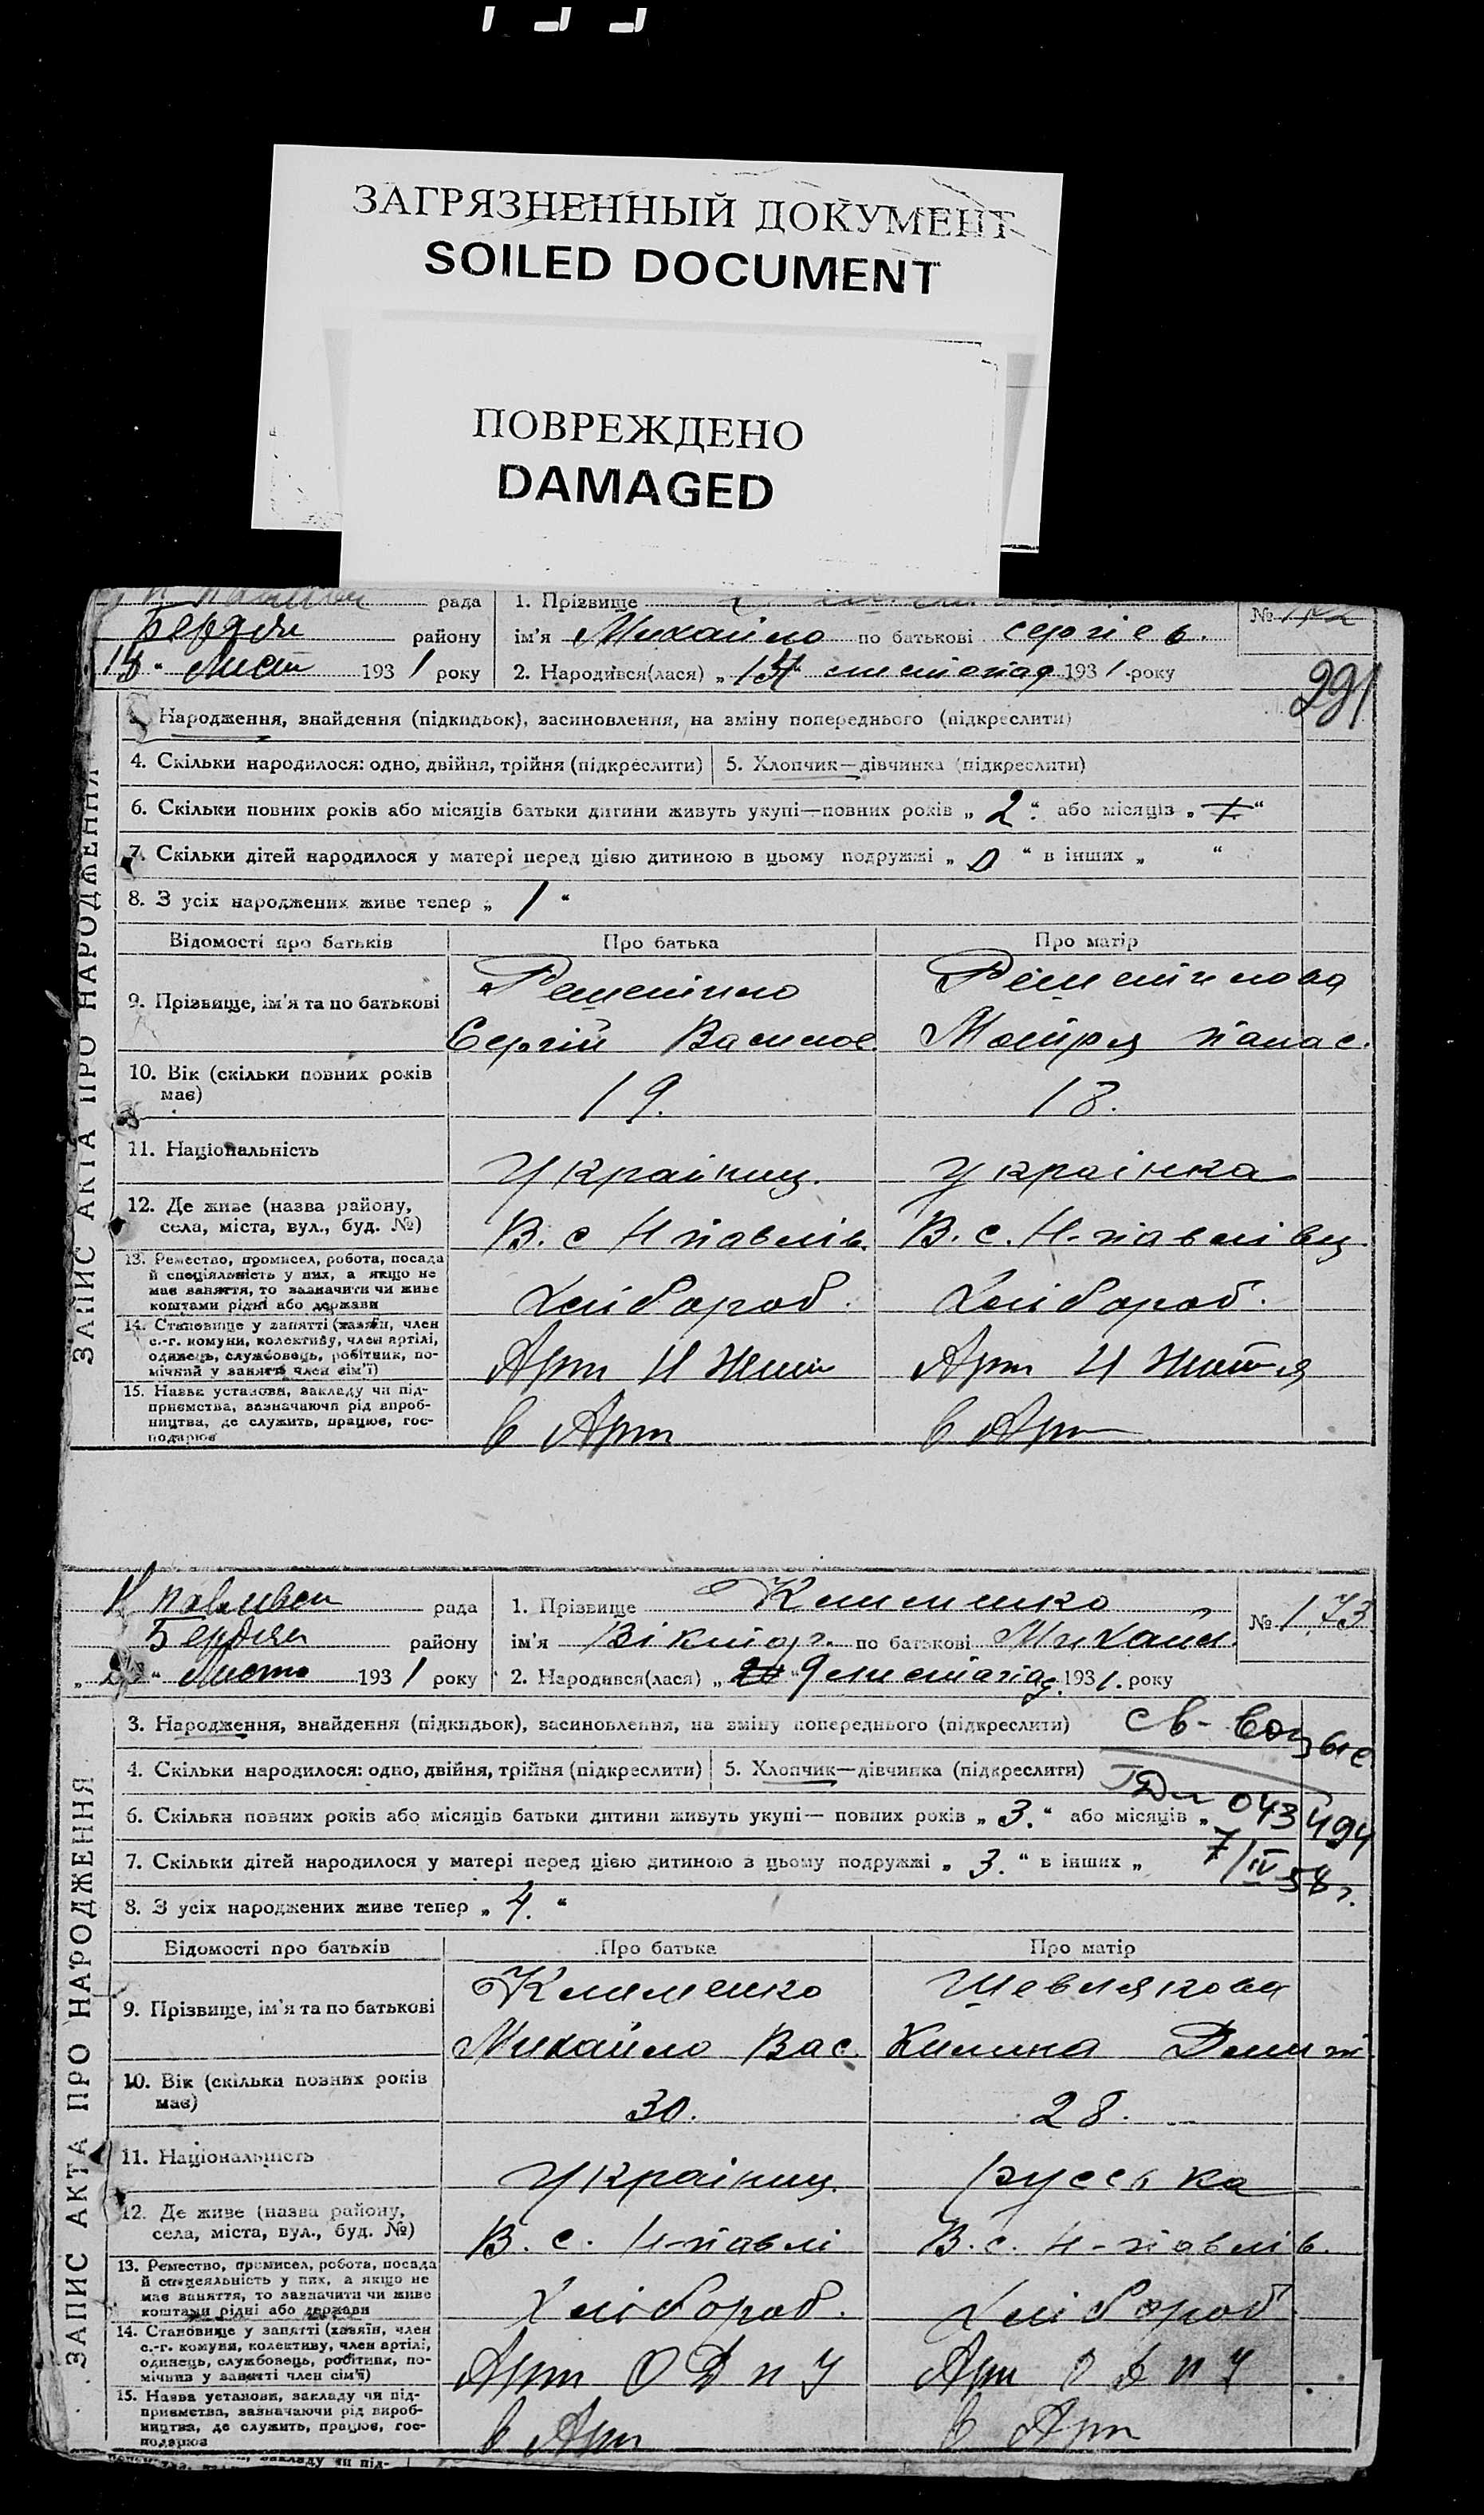 ЗАГРЯЗНЕННЫЙ ДОКУМЕНТ
SOILED DOCUMENT
ПОВРЕЖДЕНО
DAMAGED
рада
1. Прізвище
№
району
ім'я Михайло по батькові Сергіев.
18 Лист 1931 року
2. Народився(лася) „ “ листопад 1931 року
291
Народження, знайдення (підкидьок), засиновлення, на зміну попереднього (підкреслити)
4. Скільки народилося: одно, двійня, трійня (підкреслити)
5. Хлопчик—дівчинка (підкреслити)
6. Скільки повних років або місяців батьки дитини живуть укупі—повних років „2“ або місяців „ “
7. Скільки дітей народилося у матері перед цією дитиною в цьому подружжі „0“ в інших „ “
8. З усіх народжених живе тепер „1“
Відомості про батьків
Про батька
Про матір
9. Прізвище, ім'я та по батькові
Сергій Василов.
Панас.
10. Вік (скільки повних років має)
19.
18.
11. Національність
Українец.
Українка
12. Де живе (назва району, села, міста, вул., буд. №)
В. с Н павлів.
В. с. Н-павлівц
13. Ремество, промисел, робота, посада
й спеціяльність у них, а якщо не
має заняття, то зазначити чи живе
коштами рідні або держави
Хлібороб.
Хлібороб.
14. Становище у занятті (хазяїн, член
с.-г. комуни, колективу, член артілі,
одинець, службовець, робітник, по-
мічний у занятті член сім'ї)
Арт Н Жит
Арт Н Життя
15. Назва установи, закладу чи під-
приємства, зазначаючи рід вироб-
ництва, де служить, працює, гос-
подарює
в Арт
в Арт
ЗАПИС АКТА ПРО НАРОДЖЕННЯ
Н павливец рада
1. Прізвище Клименко
№ 173
Бердян району
ім'я Віктор. по батькові Михайл.
Листо 1931 року
2. Народився(лася) „ “ 9 листопад. 1931. року
3. Народження, знайдення (підкидьок), засиновлення, на зміну попереднього (підкреслити)
св-во
4. Скільки народилося: одно, двійня, трійня (підкреслити)
5. Хлопчик—дівчинка (підкреслити)
043494
6. Скільки повних років або місяців батьки дитини живуть укупі— повних років „3.“ або місяців „
7/IV 58 г.
7. Скільки дітей народилося у матері перед цією дитиною в цьому подружжі „3.“ в інших „
8. З усіх народжених живе тепер „4.“
Відомості про батьків
Про батька
Про матір
9. Прізвище, ім'я та по батькові
Клименко
Шевлякова
Михайло Вас.
Килина Дмит
10. Вік (скільки повних років має)
30.
28.
11. Національність
Українец.
руська
12. Де живе (назва району, села, міста, вул., буд. №)
В. с. Н-павлі
В. с. Н-павлів.
13. Ремество, промисел, робота, посада
й спецеяльність у них, а якщо не
має заняття, то зазначити чи живе
коштами рідні або держави
Хлібороб.
Хлібороб.
14. Становище у занятті (хазяїн, член
с.-г. комуни, колективу, член артілі,
одинець, службовець, робітник, по-
мічник у занятті член сім'ї)
Арт О Д П У
Арт О Д П У
15. Назва установи, закладу чи під-
приємства, зазначаючи рід вироб-
ництва, де служить, працює, гос-
подарює
в Арт
в Арт
ЗАПИС АКТА ПРО НАРОДЖЕННЯ
закладу чи під-